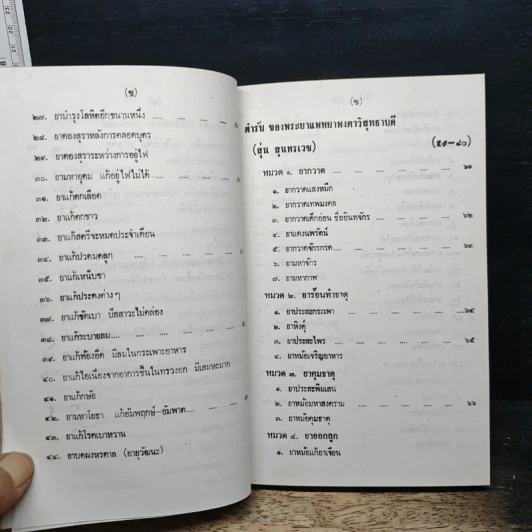 (ช)
๒๗. ยาบำรุงโลหิตอีกขนานหนึ่ง .... .... .... ....
๒๘. ยาดองสุราหลังการคลอดบุตร
๒๙. ยาดองสุราระหว่างการอยู่ไฟ
๓๐. ยามหาอุดม แก้อยู่ไฟไม่ได้ .... .... .... ....
๓๑. ยาแก้ตกเลือด
๓๒. ยาแก้ตกขาว
๓๓. ยาแก้สตรีจะหมดประจำเดือน
๓๔. ยาแก้ปวดมดลูก .... .... .... .... ....
๓๕. ยาแก้เหน็บชา
๓๖. ยาแก้ประดงต่างๆ
๓๗. ยาแก้ขัดเบา ปัสสาวะไม่คล่อง
๓๘. ยาแก้ระบายลม .... .... .... .... ....
๓๙. ยาแก้ท้องอืด มีลมในกระเพาะอาหาร
๔๐. ยาแก้ไอเนื่องจากอาการชื้นในทรวงอก มีเสมหะมาก
๔๑. ยาแก้กษัย
๔๒. ยามหาโยธา แก้อัมพฤกษ์-อัมพาต .... .... ....
๔๓. ยาแก้โรคเบาหวาน
๔๔. ยาบดผงหรคาล (อายุวัฒนะ)
(ซ)
ตำรับ ของพระยาแพทยาพงศาวิสุทธาบดี
(สุ่น สุนทรเวช) (๕๙-๘๐)
หมวด ๑. ยากวาด .... .... .... .... ๖๑
๑. ยากวาดแสงหมึก
๒. ยากวาดเทพมงคล
๓. ยากวาดเด็กอ่อน ชื่ออินทจักร .... .... .... ๖๒
๔. ยาแดงนพรัตน์
๕. ยากวาดจักรกรด .... .... .... .... ๖๓
๖. ยามหาจักร
๗. ยามหากาฬ
หมวด ๒. ยาร้อนทำธาตุ
๑. ยาประสะกระเพรา .... .... .... .... ๖๔
๒. ยาหิงคุ์
๓. ยาประสะไพร .... .... .... .... ๖๕
๔. ยาหม้อเจริญอาหาร
หมวด ๓. ยาคุมธาตุ
๑. ยาประสะพิมเสน
๒. ยาหม้อมหาสงคราม .... .... .... ๖๖
๓. ยาหม้อคุมธาตุ
หมวด ๔. ยาออกลูก
๑. ยาหม้อแก้อาเจียน